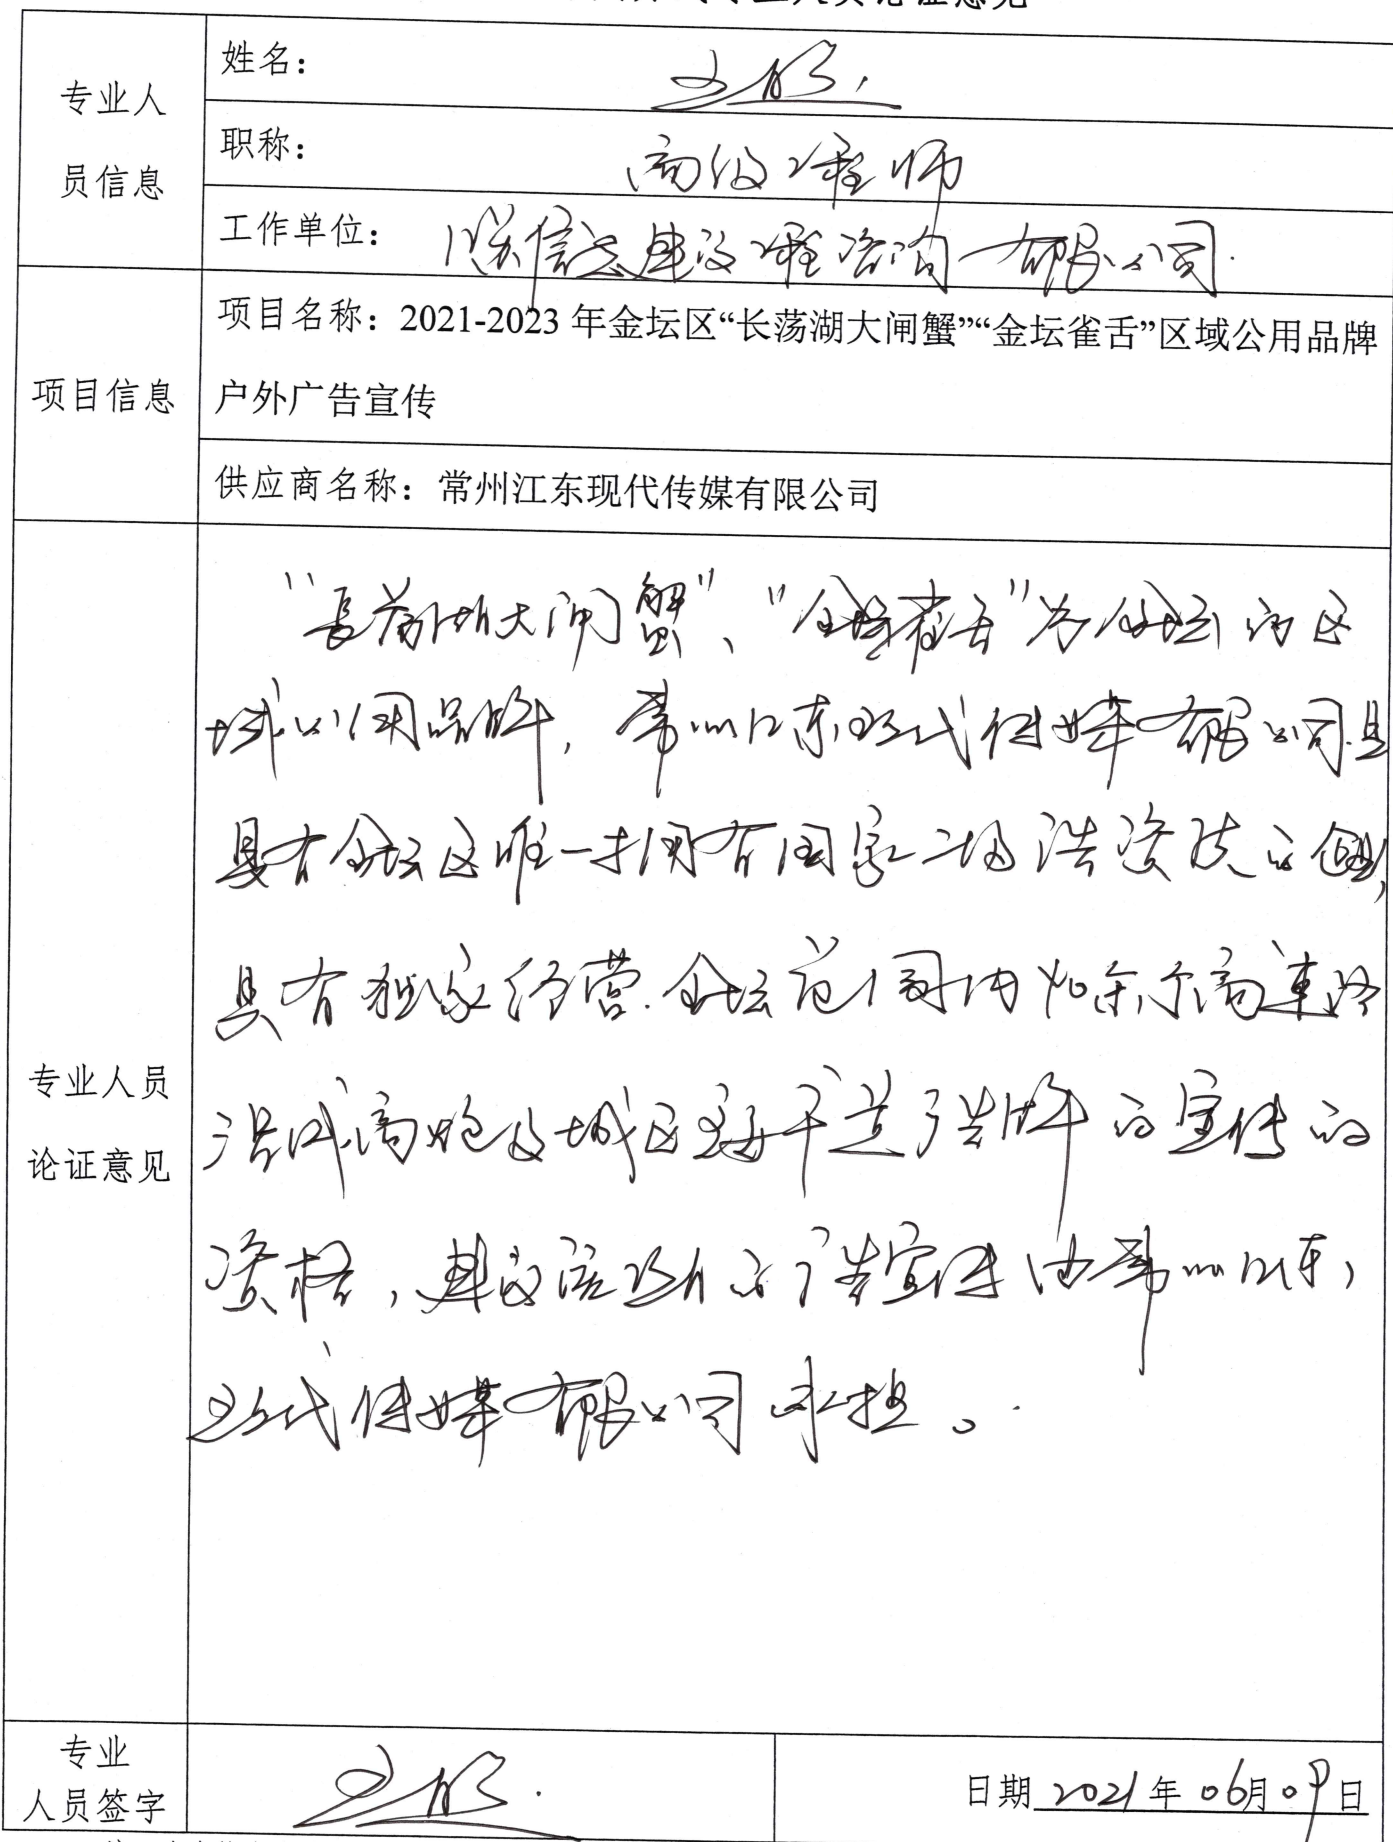 专业人员论证意见
专业人
员信息
姓名：
职称：
高级工程师
工作单位：
建设工程咨询有限公司
项目信息
项目名称：2021-2023 年金坛区“长荡湖大闸蟹”“金坛雀舌”区域公用品牌
户外广告宣传
供应商名称：常州江东现代传媒有限公司
专业人员
论证意见
“長荡湖大闸蟹”、“金坛雀舌”为金坛的区
域公用品牌，常州江东现代传媒有限公司是
具有金坛区唯一拥有国家二级广告资质的企业，
具有独家经营金坛范围内 高速路
沿线高炮及城区主要干道广告牌的宣传的
资格，建议 的广告宣传由常州江东
现代传媒有限公司承担。
专业
人员签字
日期 2021年06月09日